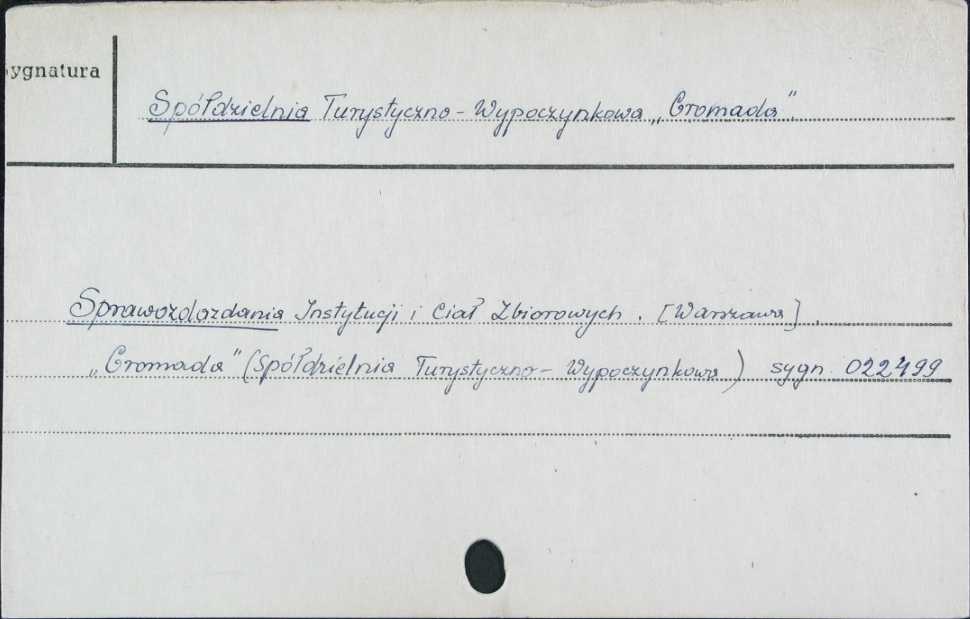 ygnatura
Spółdzielnia Turystyczno - Wypoczynkowa „Gromada”.
Sprawozdazdania Instytucji i Ciał Zbiorowych. [Warszawa].
„Gromada” (Spółdzielnia Turystyczno - Wypoczynkowa) sygn. 022499